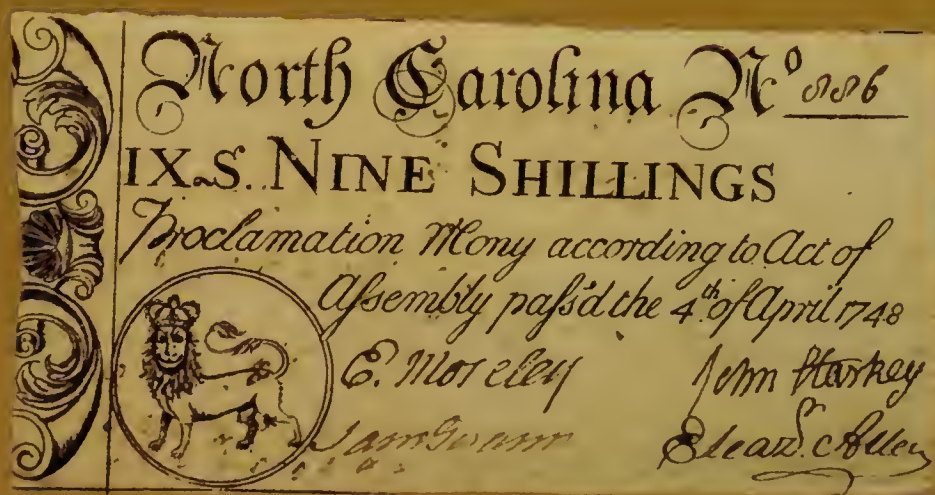 North Carolina No 886
IX.S. NINE SHILLINGS
Proclamation Mony according to Act of
Aſsembly paſs'd the 4th of April 1748
E. Moseley John Starkey
Sam Swann Eleazr. Allen